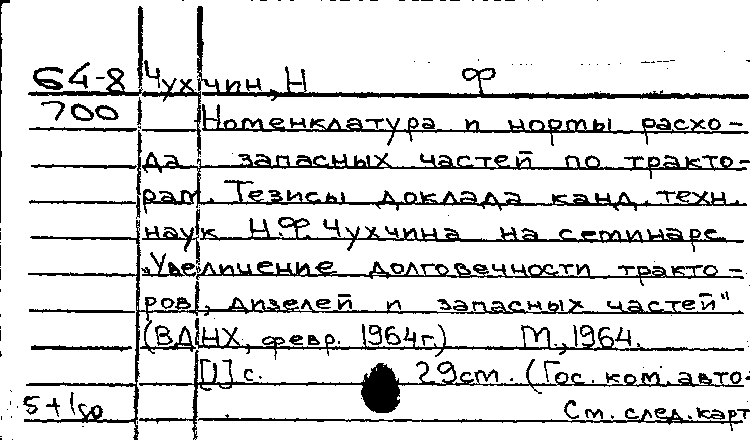 64-8 Чухчин, Н Ф
700 Номенклатура и нормы расхо-
да запасных частей по тракто-
рам. Тезисы доклада канд. техн.
наук Н.Ф. Чухчина на семинаре
„Увеличение долговечности тракто-
ров, дизелей и запасных частей"
(ВДНХ, февр. 1964г.) М., 1964.
[1] с. 29см. (Гос. ком. авто-
См. след. карт